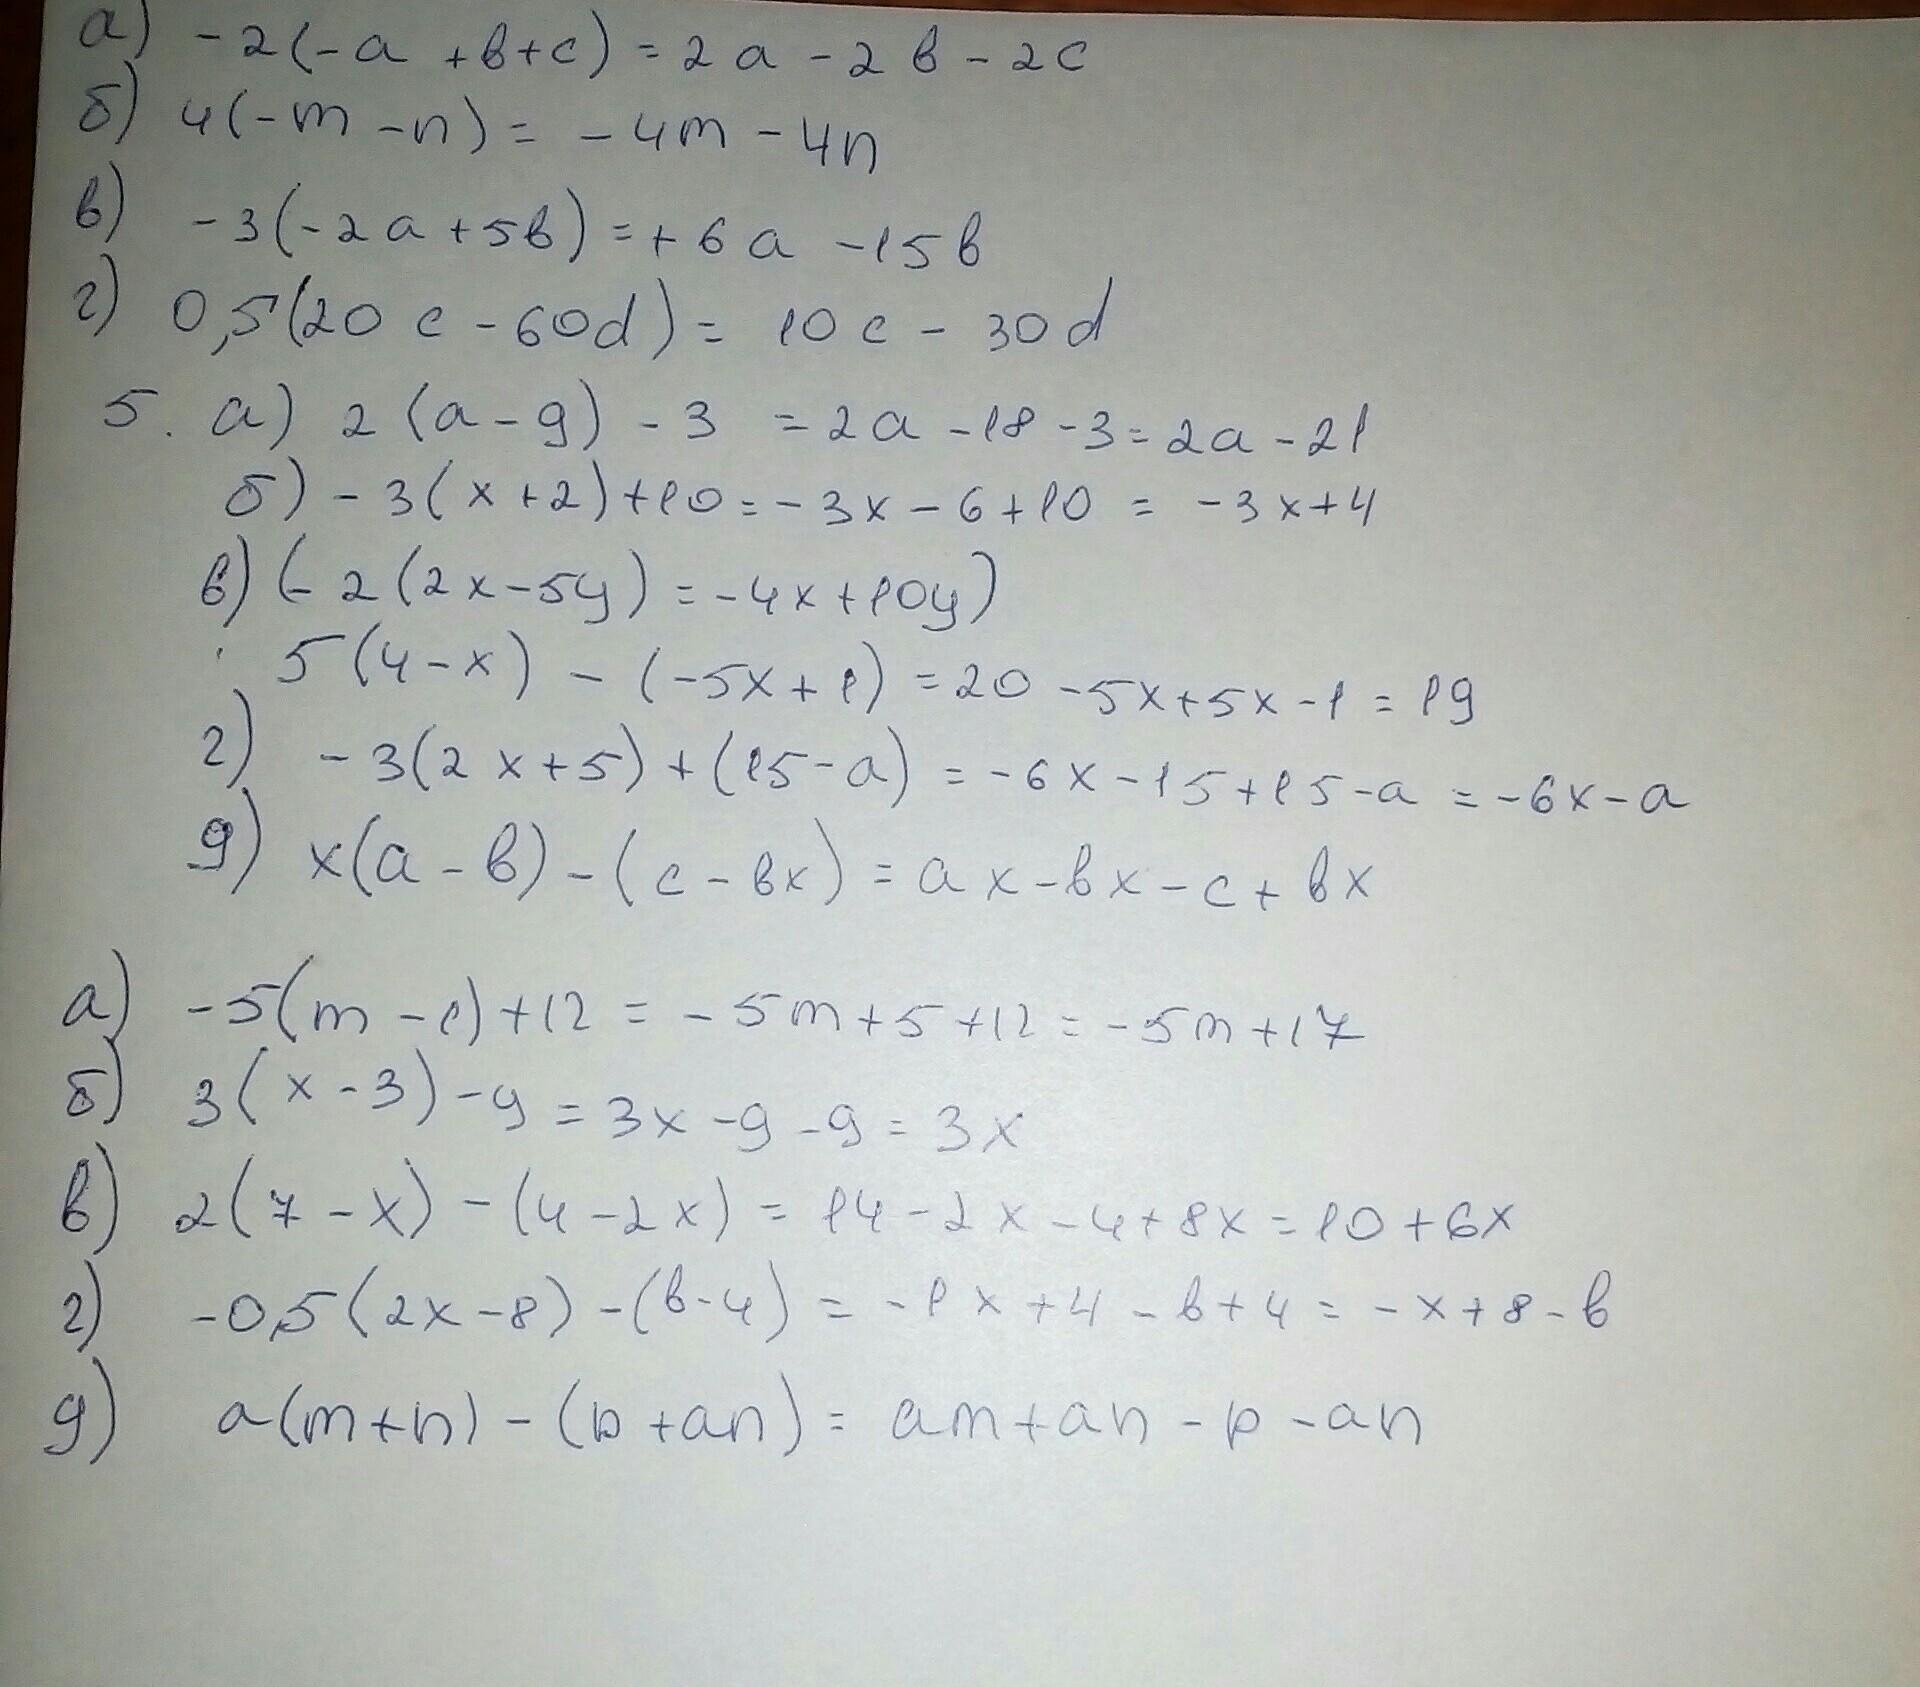 а) -2(-a +b+c) = 2a - 2b - 2c
б) 4(-m -n) = -4m - 4n
в) -3(-2a+5b) = +6a -15b
г) 0,5(20c - 60d) = 10c - 30d
5. а) 2(a-9) - 3 = 2a -18 -3 = 2a -21
б) -3(x+2)+10 = -3x - 6+10 = -3x+4
в) (-2(2x-5y) = -4x+10y)
5(4-x) - (-5x+1) = 20 -5x+5x -1 = 19
г) -3(2x+5)+(15-a) = -6x -15+15-a = -6x-a
д) x(a-b) - (c-bx) = ax-bx-c+bx
а) -5(m-1)+12 = -5m+5+12 = -5m+17
б) 3(x-3)-9 = 3x -9 -9 = 3x
в) 2(7-x) - (4-2x) = 14-2x-4+8x = 10+6x
г) -0,5(2x-8) - (b-4) = -1x+4-b+4 = -x+8-b
д) a(m+n) - (p+an) = am+an-p-an